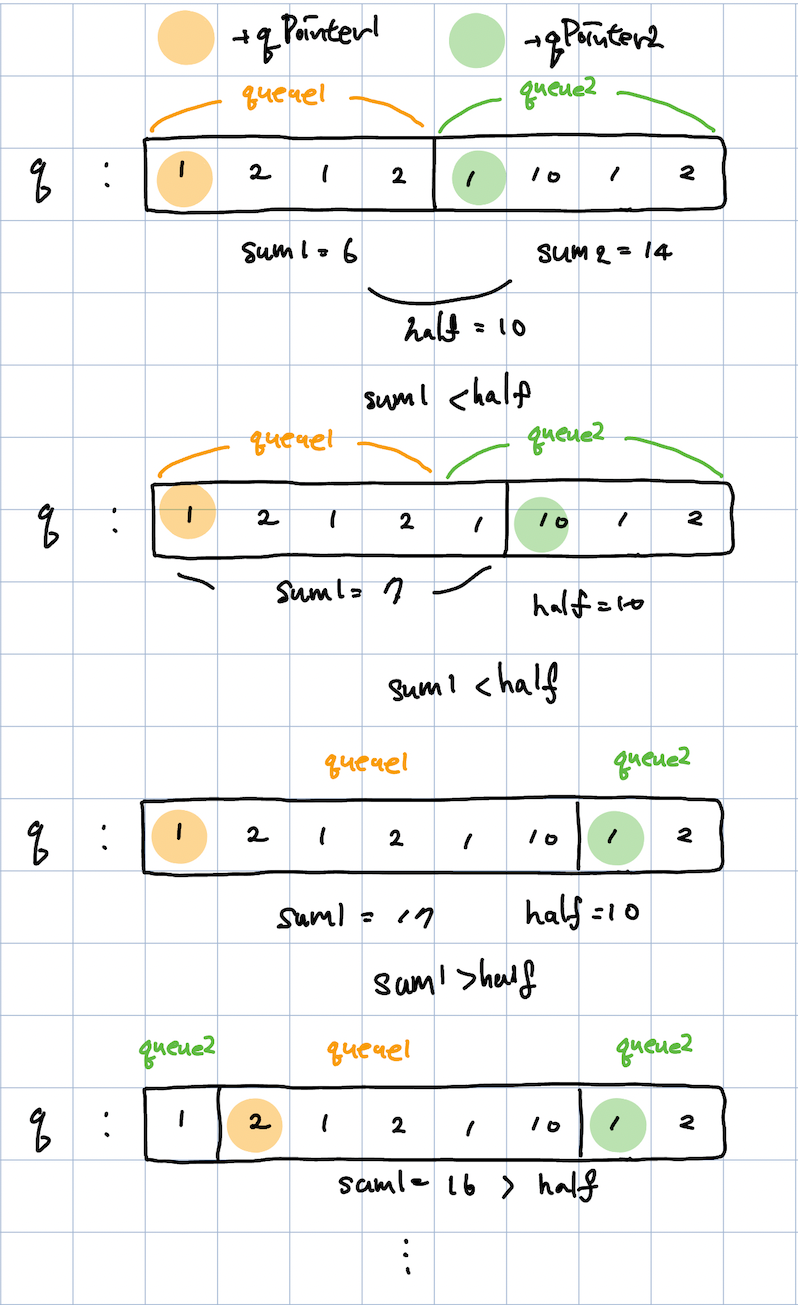 →qPointer1 →qPointer2
queue1 queue2
q : 1 2 1 2 1 10 1 2
sum1 = 6 sum2 = 14
half = 10
sum1 < half
queue1 queue2
q : 1 2 1 2 1 10 1 2
sum1 = 7 half = 10
sum1 < half
queue1 queue2
q : 1 2 1 2 1 10 1 2
sum1 = 17 half = 10
sum1 > half
queue2 queue1 queue2
q : 1 2 1 2 1 10 1 2
sum1 = 16 > half
⋮